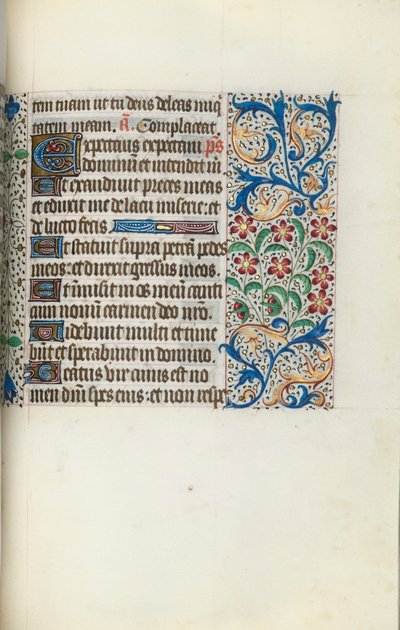 tem tuam ut tu deus deleas iniq
tatem meam. a. Complaceat
Expectans expectaui ps
dominum et intendit m
Et exaudiuit preces meas
et eduxit me de lacu miserie: et
de luto fecis
Et statuit supra petram pedes
meos: et direxit gressus meos.
Et inmisit in os meum canti
cum nouum carmen deo nro.
Videbunt multi et time
bunt et sperabunt in domino.
Beatus vir cuius est no
men dni spes eius: et non respx